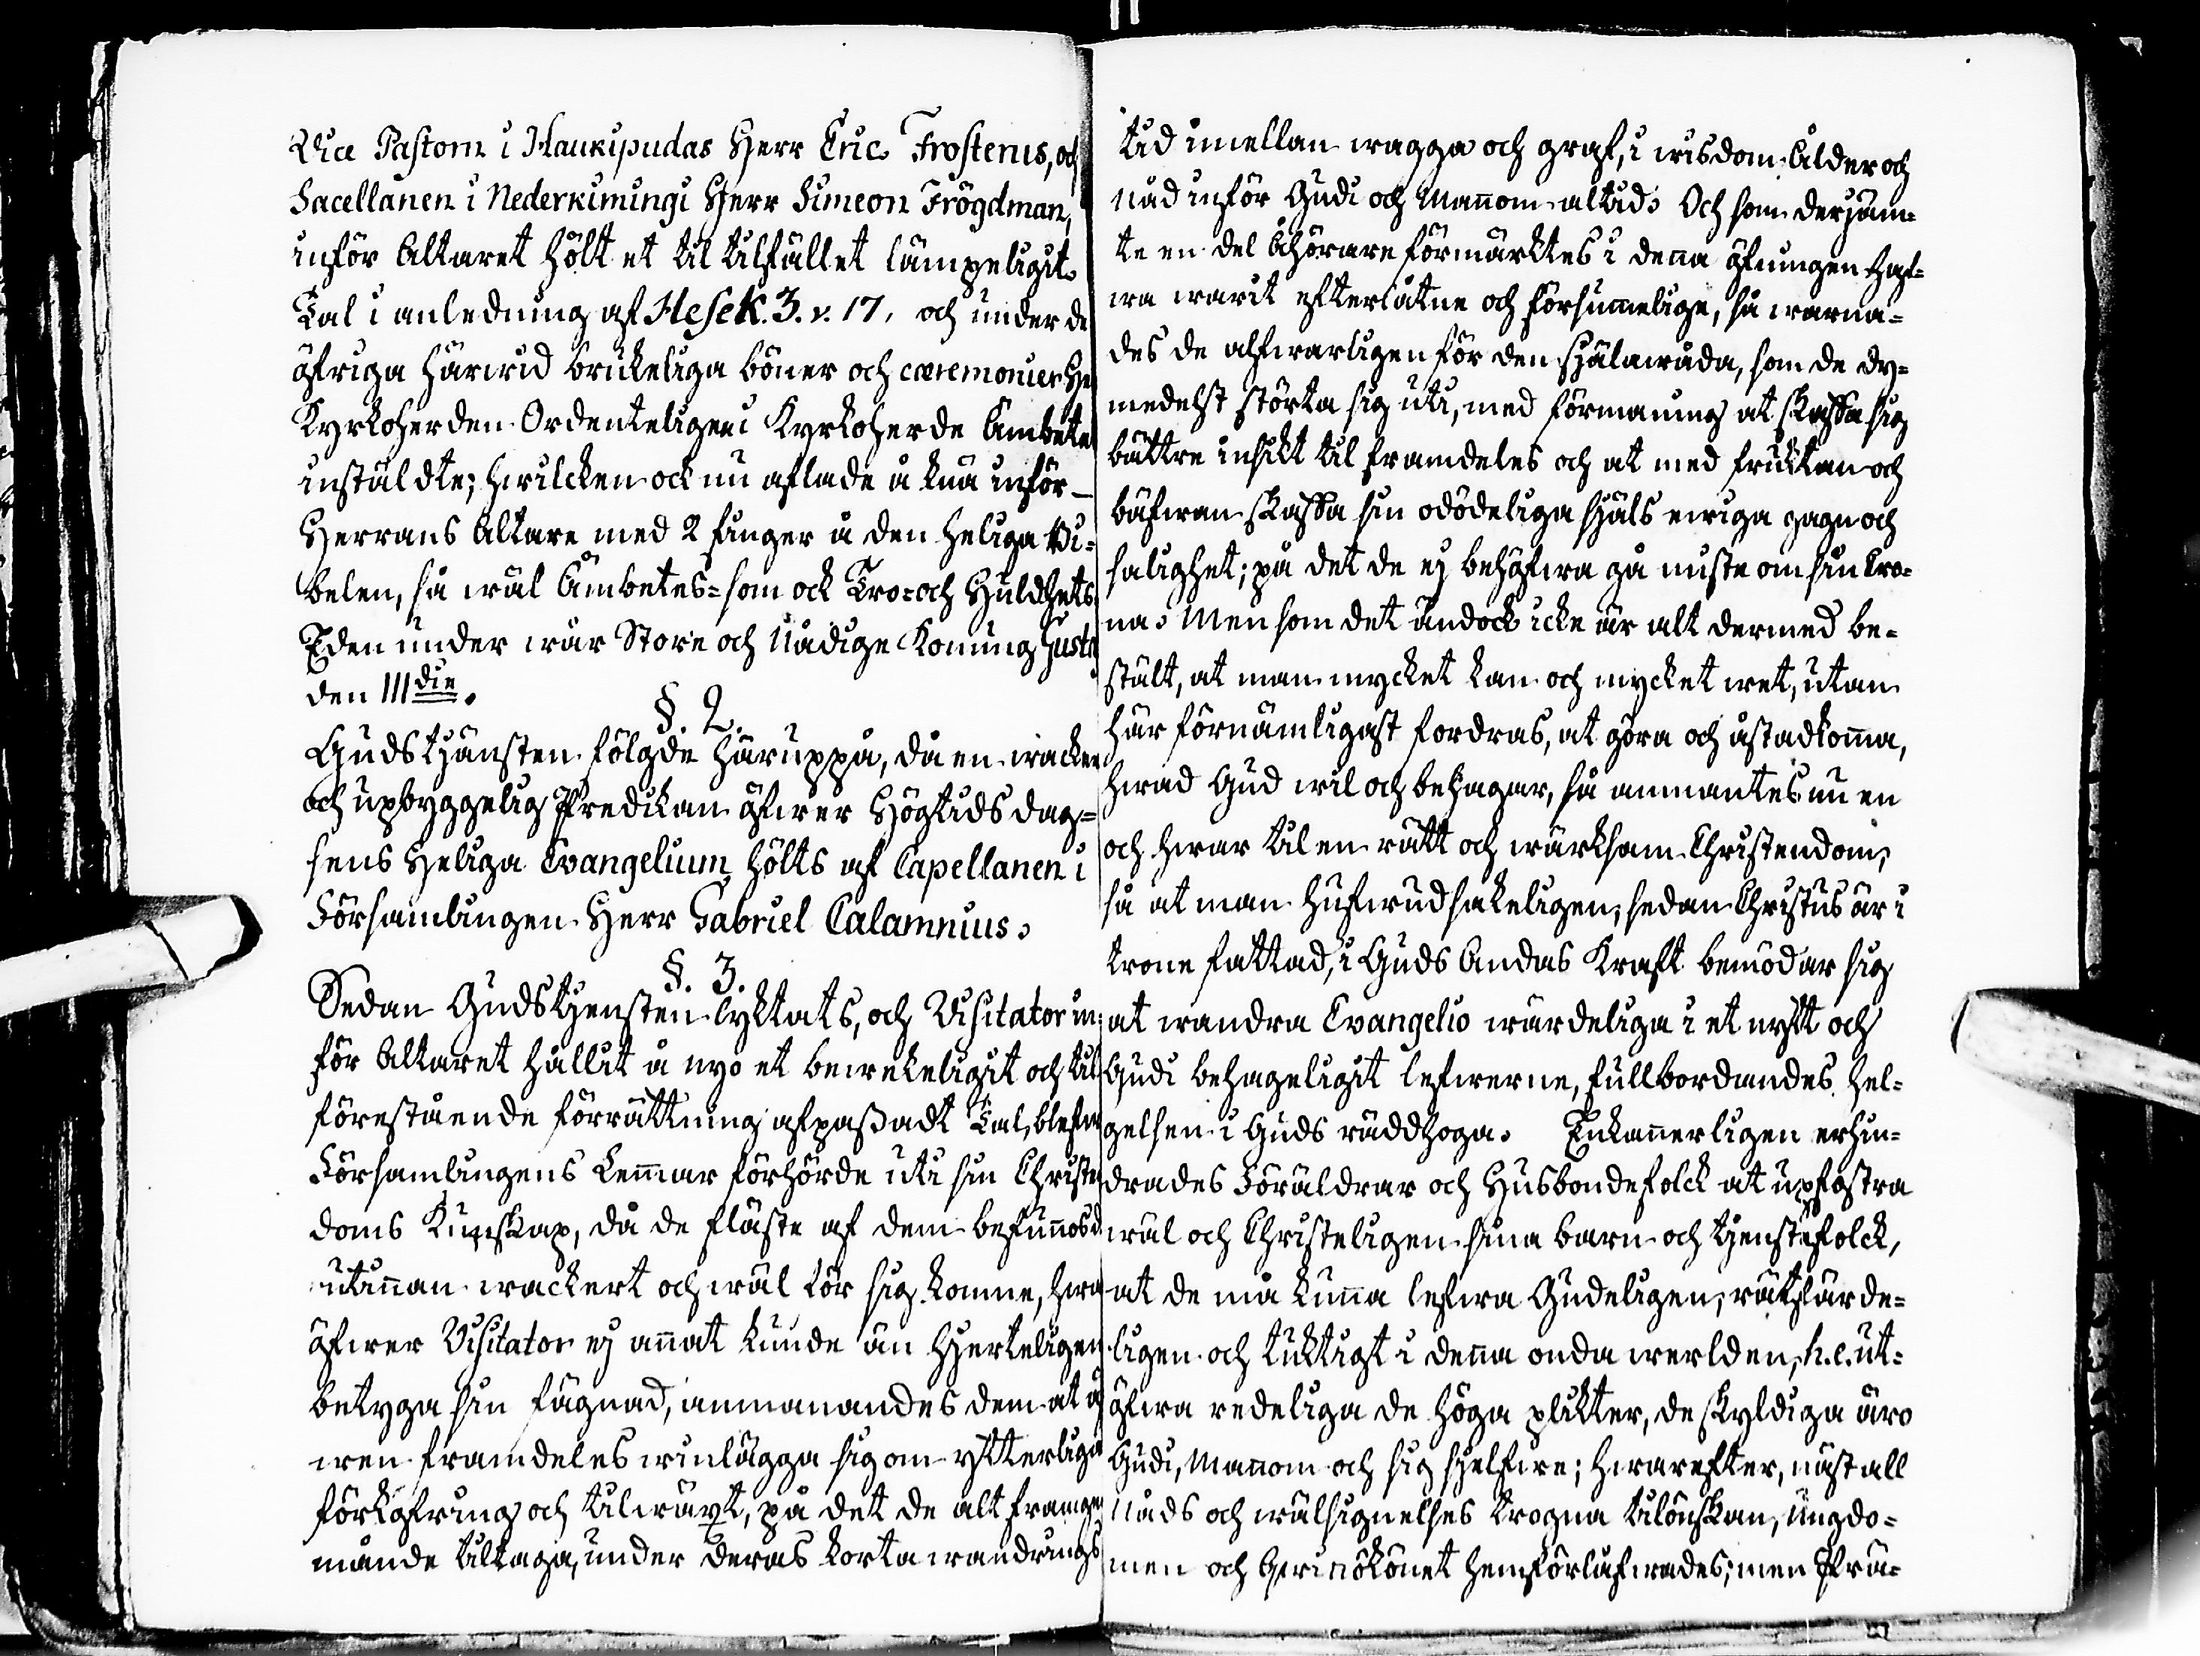 Vice Pastorn i Haukipudas Herr Eric Frosterus, och
Sacellanen i Nederkimingi Herr Simeon Frögdman,
inför Altaret hölt et til tilfället lämpeligit
Tal i anledning af Hesek. 3. v. 17, och under de
öfriga härwid brukeliga böner och cæremonier He
Kyrkoherden Ordenteligen i Kyrkoherde Ämbete
instäldte; hwilcken ock nu aflade å knä inför
Herrans Altare med 2 finger å den heliga Bi-
belen, så wäl Ämbetes- som ock Tro- och Huldhets
Eden under wår Store och Nådige Konung Gusta
den III die.
§. 2.
Gudstjänsten följde häruppå, då en wacker
och upbyggelig Predikan öfwer Högtidsdag-
sens Heliga Evangelium hölts af Capellanen i
Församlingen Herr Gabriel Calamnius.
§. 3.
Sedan Gudstjensten lyktats, och Visitator in-
för Altaret hållit å nyo et bewekeligit och til
förestående förrättning afpaßadt Tal, blefwo
Församlingens Lemmar förhörde uti sin Christen
doms Kunskap, då de fläste af dem befunnos d
utinnan wackert och wäl för sig komne, hwa
öfwer Visitator ej annat kunde än Hjerteligen
betyga sin fägnad, anmanandes dem at ä
wen framdeles winlägga sig om ytterliga
förkofring och tilwäxt, på det de alt framgen
månde tiltaga, under deras korta wandrings
tid imellan wagga och graf, i wisdom Ålder och
nåd inför Gudi och Mannom altid. Och som derjäm-
te en del Åhörare förmärktes i denna öfningen haf-
wa warit efterlåtne och försummelige, så warna-
des de alfwarligen för den själawåda, som de dy-
medelst störta sig uti, med förmaning at skaffa sig
bättre insikt til framdeles och at med fruktan och
bäfwan skaffa sin odödeliga själs ewiga gagn och
salighet; på det de ej behöfwa gå miste om sin Cro-
na. Men som det ändock icke är alt dermed be-
stält, at man mycket kan och mycket wet, utan
här förnämligast fordras, at göra och åstadkomma,
hwad Gud wil och behagar, så anmantes nu en
och hwar til en rätt och wärksam Christendom,
så at man hufwudsakeligen, sedan Christus är i
trone fattad, i Guds Andas Kraft bemödar sig
at wandra Evangelio wärdeliga i et nytt och
Gudi behageligit lefwerne, fullbordandes hel-
gelsen i Guds räddhoga. Enkannerligen erhin-
drades Föräldrar och Husbondefolck at upfostra
wäl och Christeligen sina barn och tjenstefolck,
at de må kunna lefwa Gudeligen, rätfärde-
ligen och tuktigt i denna onda werlden, h. e. ut-
öfwa redeliga de höga plikter, de skyldiga äro
Gudi, Mannom och sig sjelfwe; hwarefter, näst all
Nåds och wälsignelses trogna tilönskan, Ungdo-
men och Qwinökönet hemförläfwades; men Prä-